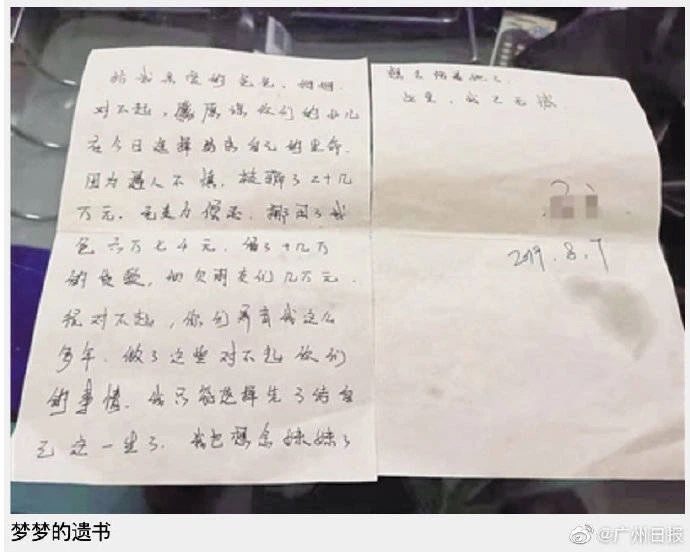 给我亲爱的爸爸、妈妈.
对不起，原谅你们的女儿
在今日选择结束自己的生命.
因为遇人不慎，被骗了二十几
万元。无法力偿还，挪用了我
爸六万七千元，借了十几万
的贷款，
很对不起，你们养育我这么
多年，做了这些对不起你们
的事情，我只能选择先了结自
己这一生了，我也想念妹妹了
想去陪着她了
这里，我已无憾
2019.8.7
梦梦的遗书
@广州日报